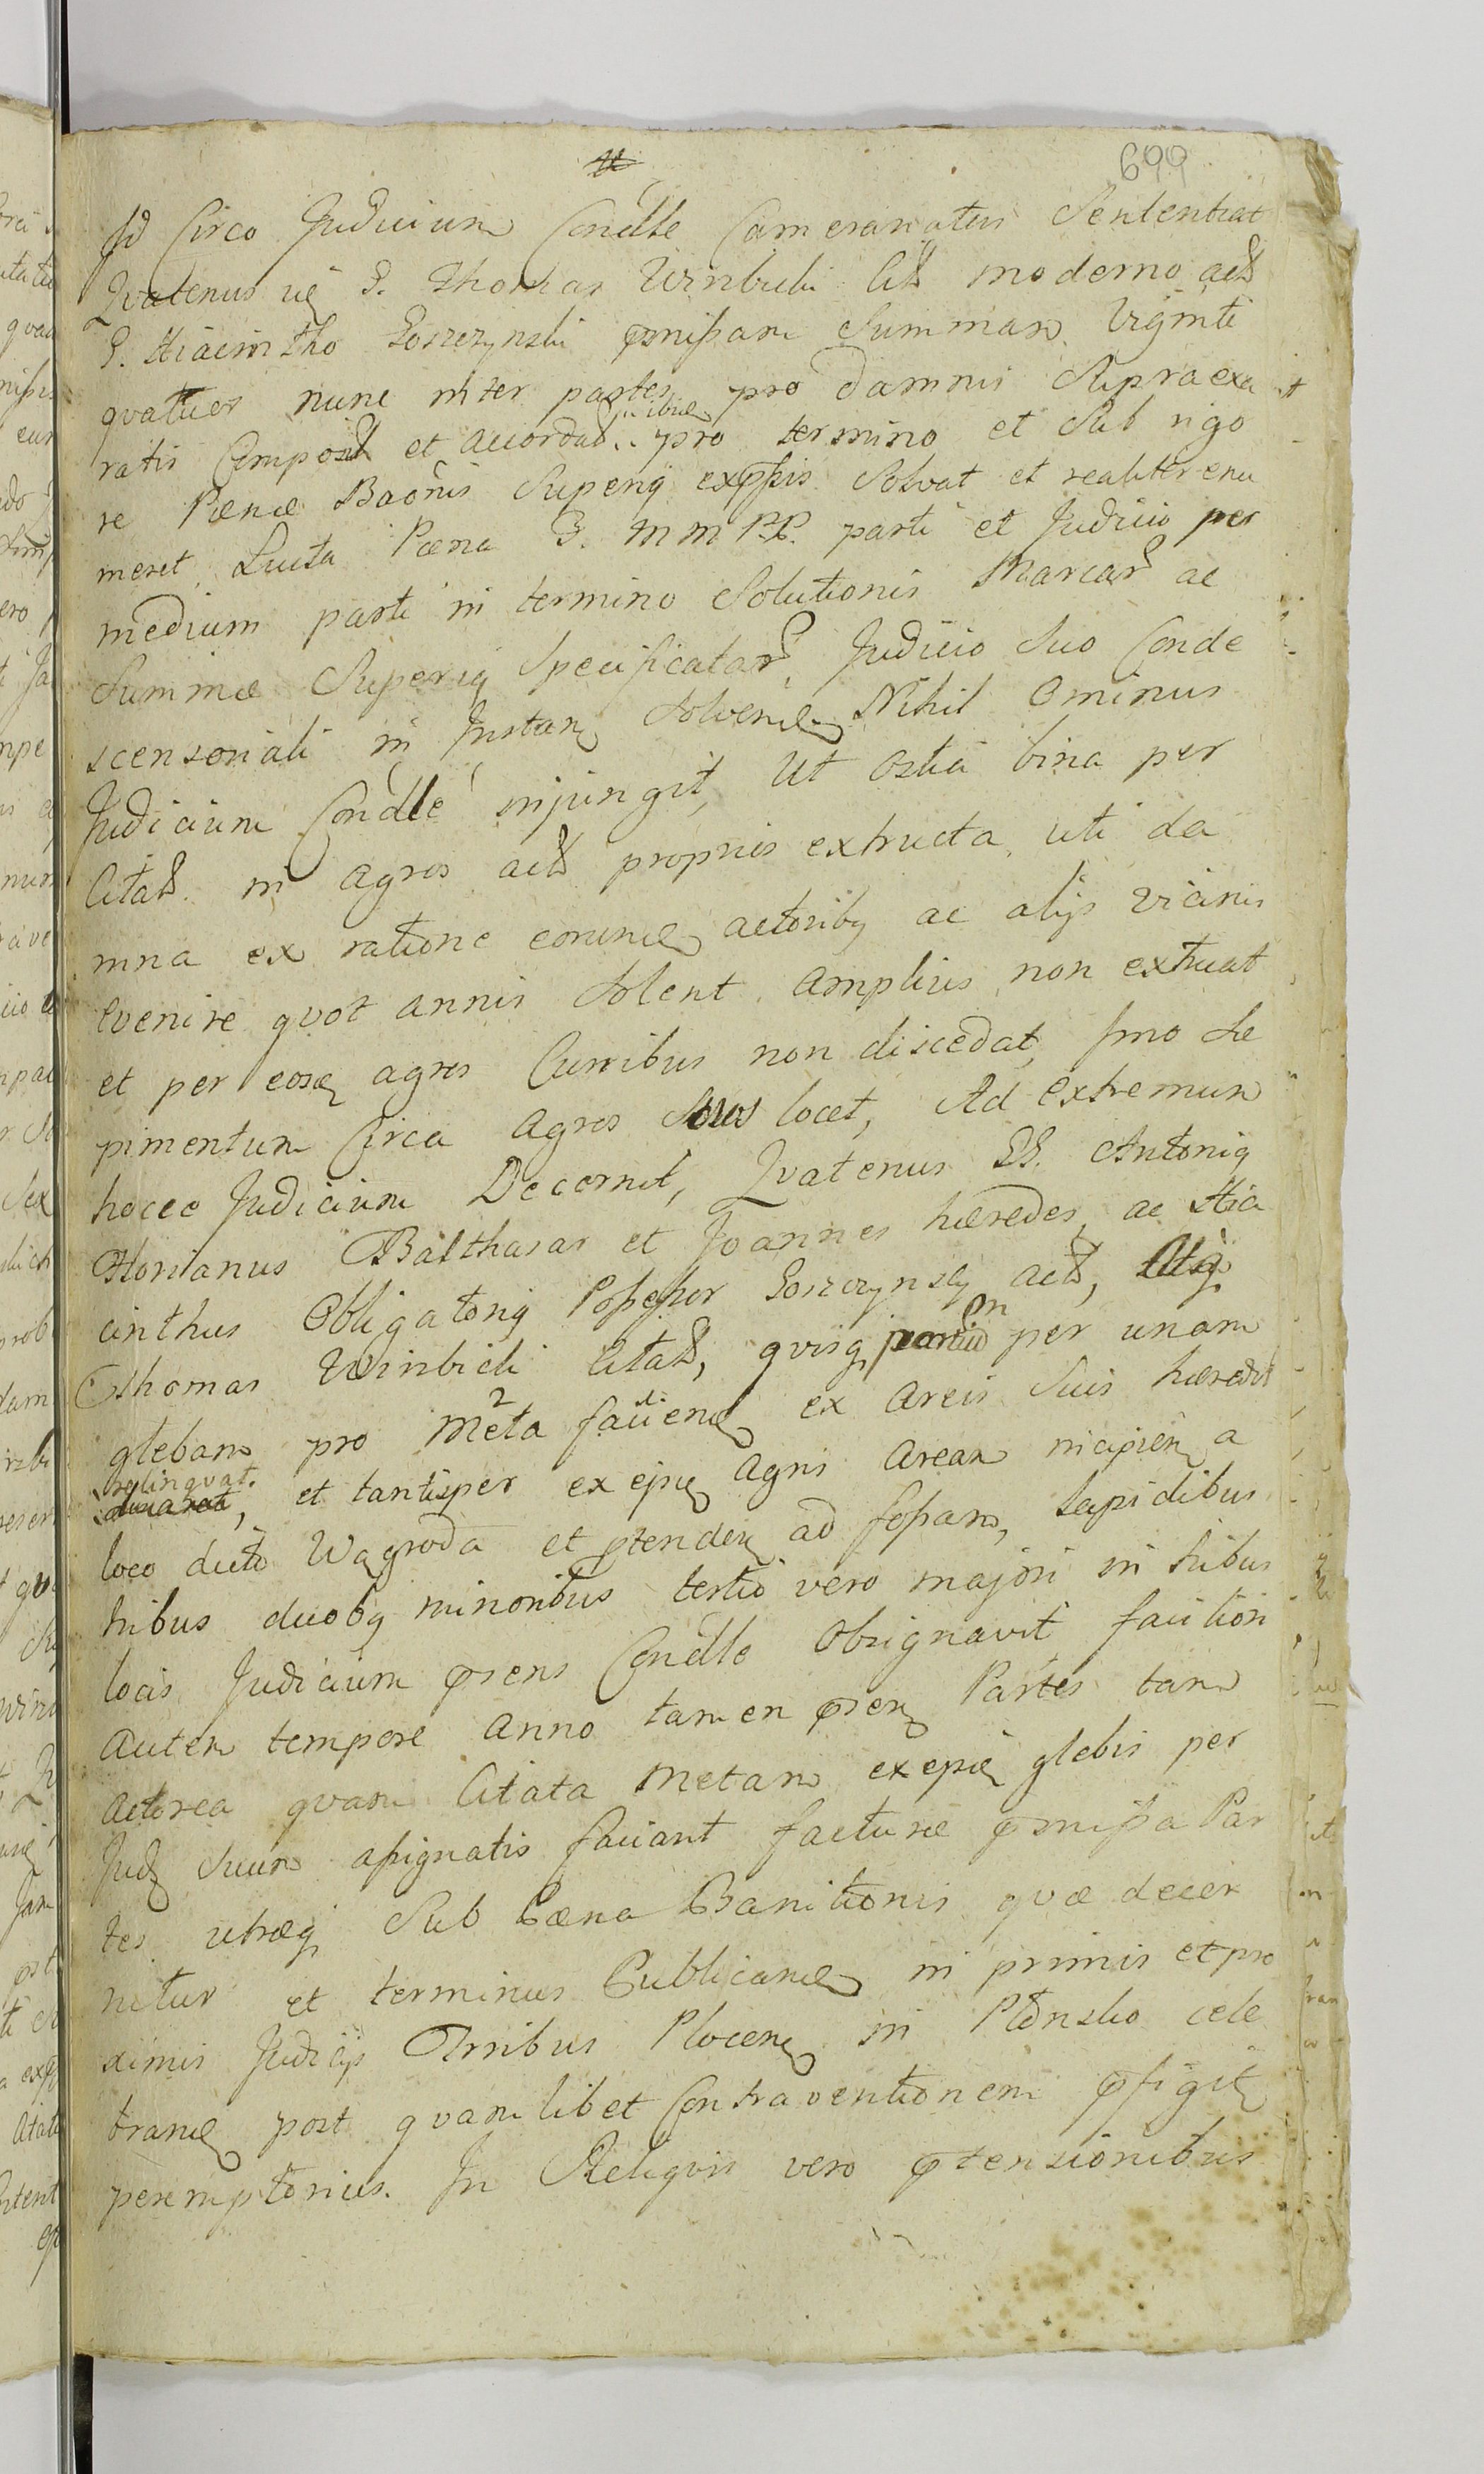 699
Id Circo Judicium Condle Camerariatus Sententiat
Qvatenus G. Thomas Winbicki Citt moderno actt
G. Hiacintho Goszczynski pmissam Summam Viginti
qvatuor nunc inter partes pro damnis Supra exa
ratis Composit et accordat pro termino et Sub rigo
re Pænæ Baonis Superiq expssis Solvat et realiter enu
meret. Luita Pæna 3. M M PP. parti et Judicio per
medium parti in termino Solutionis Marcar ac
Summæ Superiq Specificatar, Judicio Suo Conde
scensoriali in Instan Solvend Nihil Ominus
Judicium Condle injungit, Ut Ostia bina per
Citatt in agros actt propriis extructa, uti da
mna ex ratione eorund actoribq ac alijs vicinis
evenire qvot annis Solent, amplius non extruat
et per eosd agros Curribus non discedat, Imo Se
pimentum Circa agros Suos locet, Ad extremum
hocce Judicium Decernit, Qvatenus GG. Antoniq
Florianus Balthasar et Joannes hæredes, ac Hia
cinthus Obligatoriq Possessor Goszczynscy actt, Atq
Thomas Winbicki Citatt, qvisq per unam
glebam pro Meta faciend ex areis Suis hæredit
relinqvat, et tantisper ex ejusd agris aream incipien a
loco dicto Wągroda et ptenden ad fossam, lapidibus
tribus duobq minoribus tertio vero majori in tribus
locis Judicium psens Condle Obsignavit faution
autem tempore anno tamen psen Partes tam
actorea qvam Citata Metam ex epis glebis per
Jud Suum assignatis faciant facturæ pmissa Par
tes utræq Sub Pæna Banitionis qvæ decer
nitur et terminus Publicand in primis et pro
ximis Judicijs Trribus Plocen in Płonsko cele
brand post qvamlibet Contraventionem pfigit
peremptorius. In Reliqvis vero ptensionibus